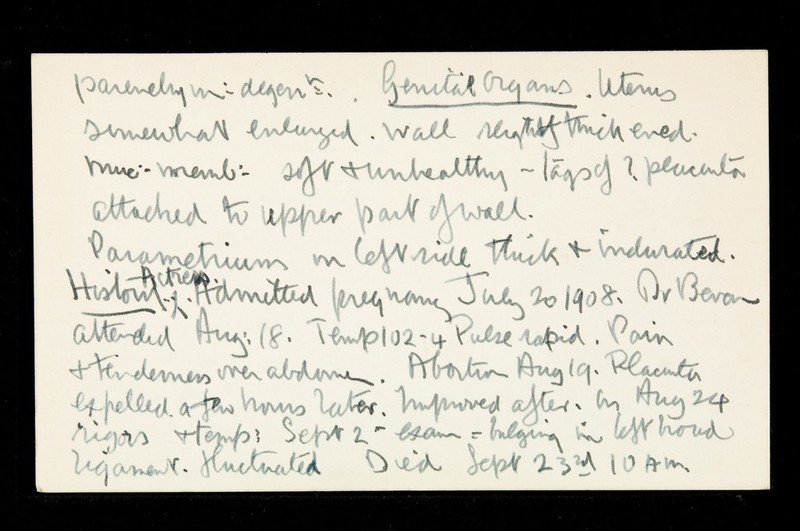 parenchym:- degenn:-. Genital Organs. Uterus
somewhat enlarged. Wall slightly thickened.
muc:- memb:- soft & unhealthy - tags of ? placenta
attached to upper part of wall.
Parametrium on left side thick & indurated.
Actress.
History. Admitted pregnancy July 20 1908. Dr Bevan
attended Aug: 18. Temp 102-4 Pulse rapid. Pain
& tenderness over abdomen. Abortion Aug 19. Placenta
expelled a few hours later. Improved after. On Aug 24
rigors & temp: Sept 2 - exam = bulging in left broad
ligament. fluctuated Died Sept 23rd 10 AM.